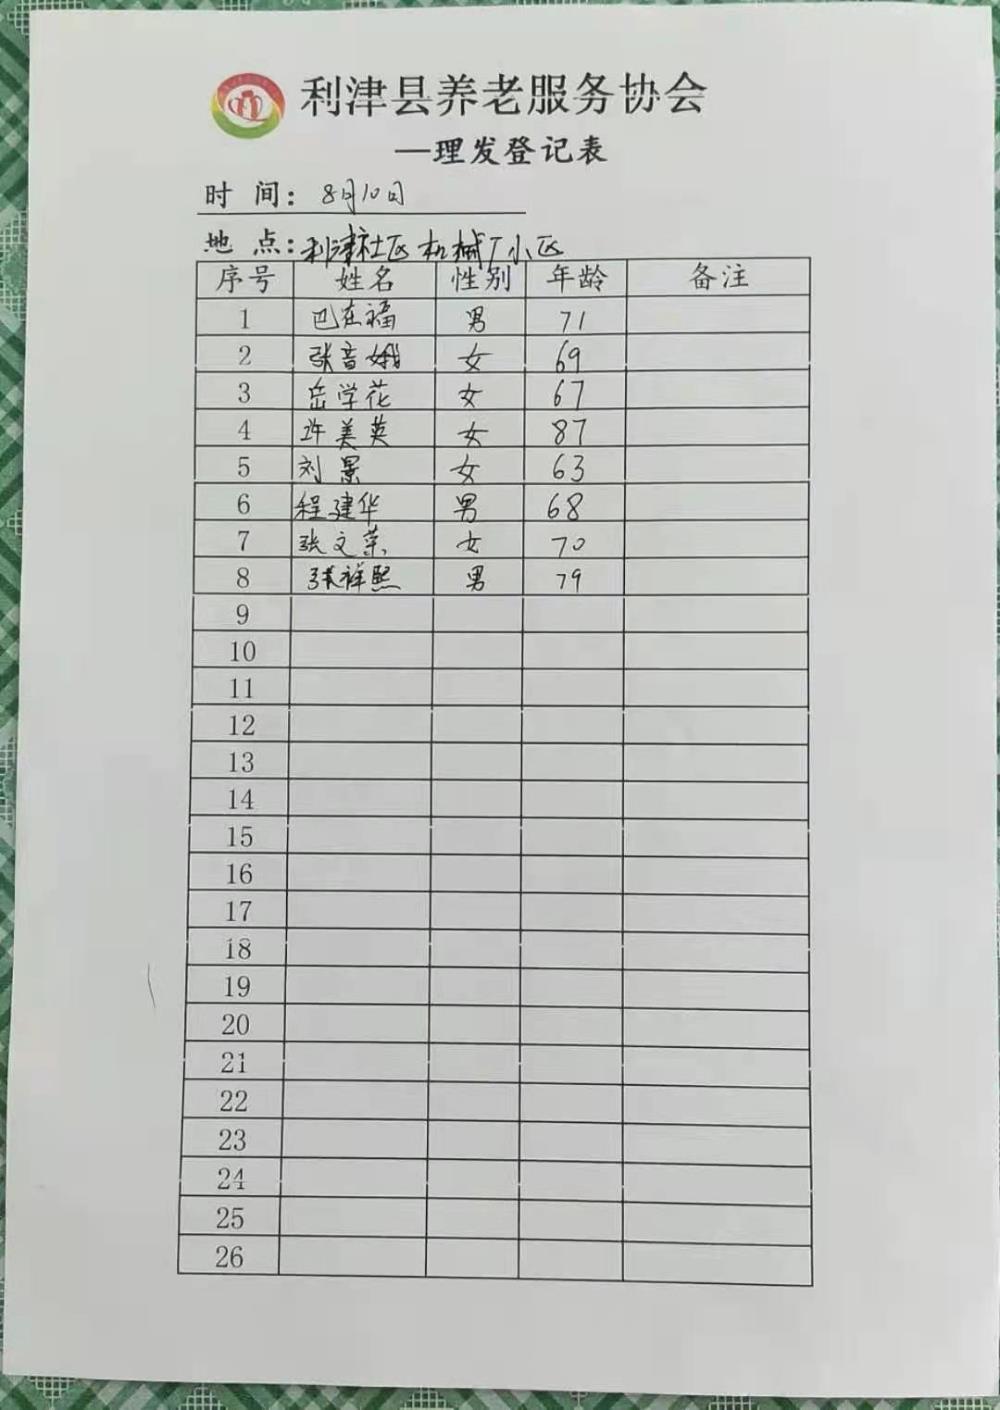 利津县养老服务协会
—理发登记表
时 间: 8月10日
地 点: 利津社区机械厂小区
序号 姓名 性别 年龄 备注
1 巴在福 男 71
2 张音娥 女 69
3 岳学花 女 67
4 许美英 女 87
5 刘景 女 63
6 程建华 男 68
7 张文荣 女 70
8 张祥熙 男 79
9
10
11
12
13
14
15
16
17
18
19
20
21
22
23
24
25
26